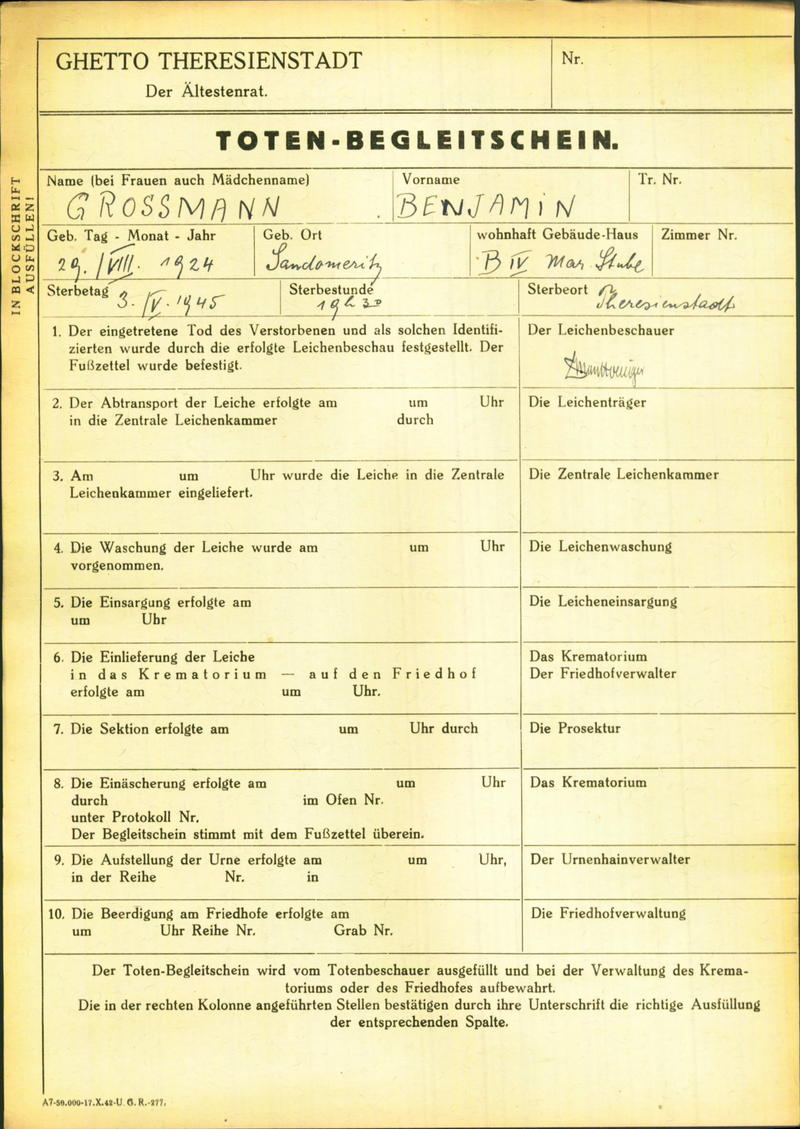 GHETTO THERESIENSTADT
Der Ältestenrat.
Nr.
TOTEN-BEGLEITSCHEIN.
IN BLOCKSCHRIFT
AUSFÜLLEN!
Name (bei Frauen auch Mädchenname) Vorname Tr. Nr.
GROSSMANN. BENJAMIN
Geb. Tag - Monat - Jahr Geb. Ort wohnhaft Gebäude-Haus Zimmer Nr.
29. /VIII. 1924 Sandomeritz B IV Mar. Stube
Sterbetag Sterbestunde Sterbeort
3. IV. 1945 19h 30 Theresienstadt
1. Der eingetretene Tod des Verstorbenen und als solchen Identifi-
zierten wurde durch die erfolgte Leichenbeschau festgestellt. Der
Fußzettel wurde befestigt.
Der Leichenbeschauer
2. Der Abtransport der Leiche erfolgte am um Uhr
in die Zentrale Leichenkammer durch
Die Leichenträger
3. Am um Uhr wurde die Leiche in die Zentrale
Leichenkammer eingeliefert.
Die Zentrale Leichenkammer
4. Die Waschung der Leiche wurde am um Uhr
vorgenommen.
Die Leichenwaschung
5. Die Einsargung erfolgte am
um Uhr
Die Leicheneinsargung
6. Die Einlieferung der Leiche
in das Krematorium — auf den Friedhof
erfolgte am um Uhr.
Das Krematorium
Der Friedhofverwalter
7. Die Sektion erfolgte am um Uhr durch
Die Prosektur
8. Die Einäscherung erfolgte am um Uhr
durch im Ofen Nr.
unter Protokoll Nr.
Der Begleitschein stimmt mit dem Fußzettel überein.
Das Krematorium
9. Die Aufstellung der Urne erfolgte am um Uhr,
in der Reihe Nr. in
Der Urnenhainverwalter
10. Die Beerdigung am Friedhofe erfolgte am
um Uhr Reihe Nr. Grab Nr.
Die Friedhofverwaltung
Der Toten-Begleitschein wird vom Totenbeschauer ausgefüllt und bei der Verwaltung des Krema-
toriums oder des Friedhofes aufbewahrt.
Die in der rechten Kolonne angeführten Stellen bestätigen durch ihre Unterschrift die richtige Ausfüllung
der entsprechenden Spalte.
A7-50.000-17.X.42-U G. R.-277.